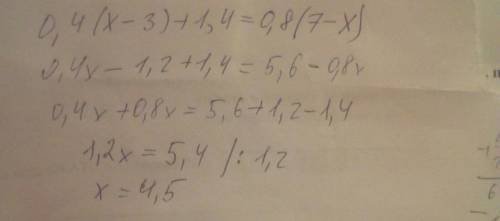 0,4(x-3)+1,4=0,8(7-x)
0,4x-1,2+1,4=5,6-0,8x
0,4x+0,8x=5,6+1,2-1,4
1,2x=5,4 /:1,2
x=4,5